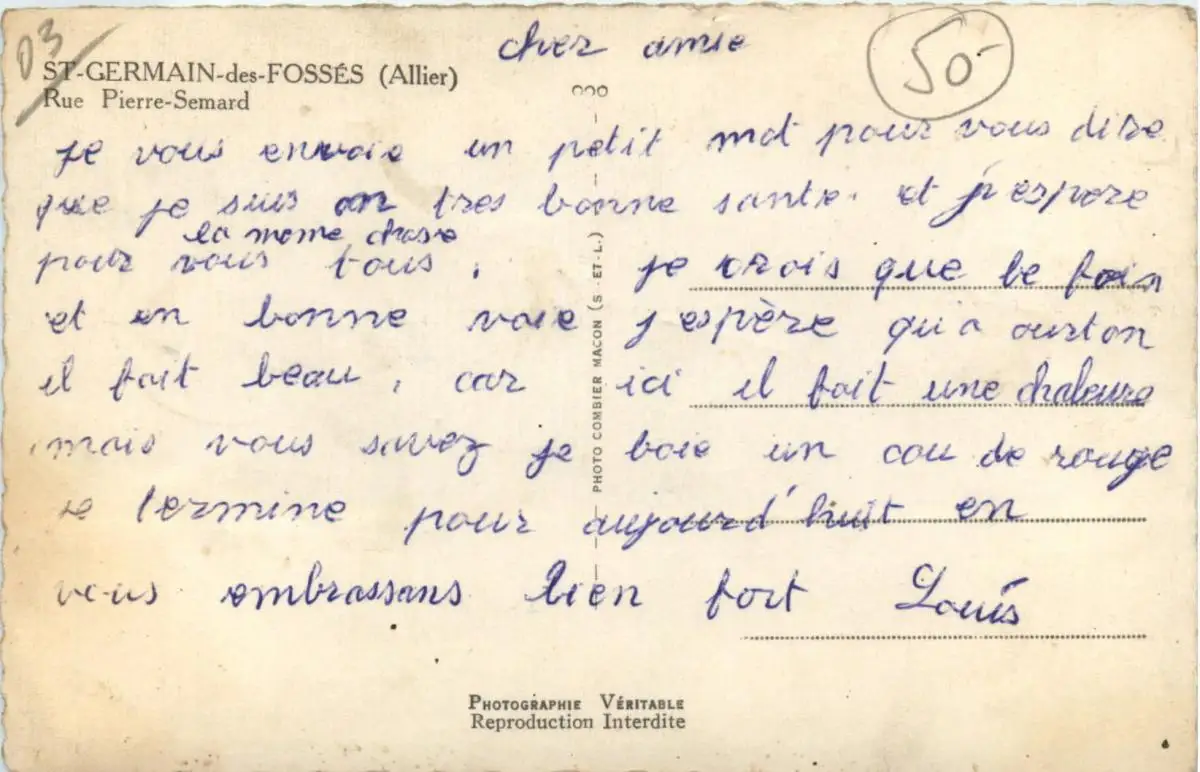 03
cher amie
50-
ST-GERMAIN-des-FOSSÉS (Allier)
Rue Pierre-Semard
je vous envoie un petit mot pour vous dire
que je suis en tres bonne sante. et j'espere
la meme chose
pour vous tous. je crois que le foin
et en bonne voie j'espère qu'a ourton
il fait beau, car ici il fait une chaleure
mais vous savez je boie un cou de rouge
je termine pour aujourd'huit en
vous embrassans bien fort Louis
PHOTO COMBIER MACON (S.-ET-L.)
PHOTOGRAPHIE VÉRITABLE
Reproduction Interdite